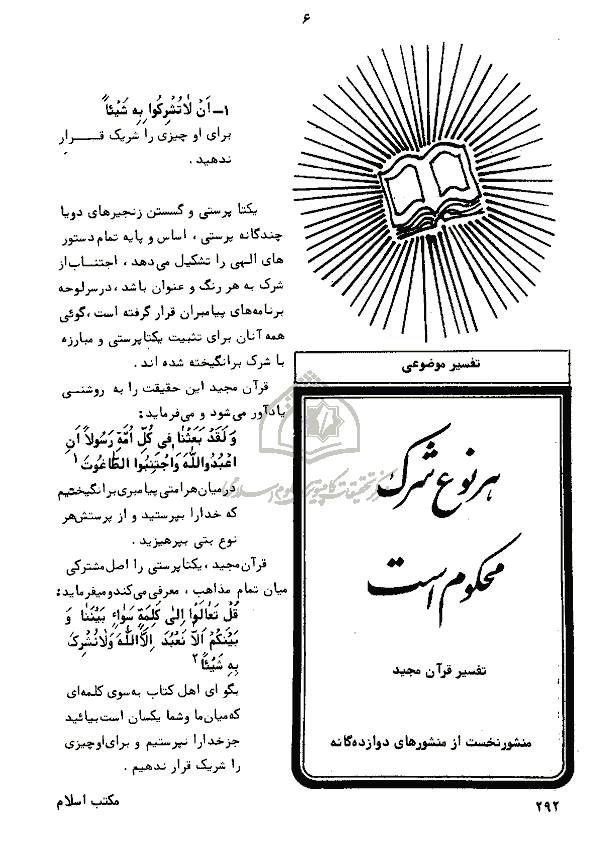 ۶
تفسیر موضوعی
هر نوع شرک
محکوم است
تفسیر قرآن مجید
منشور نخست از منشورهای دوازده‌گانه
۱ـ اَنْ لاٰتُشْرِکُوا بِهِ شَیْئاً
برای او چیزی را شریک قـــرار
ندهید .
یکتا پرستی و گسستن زنجیرهای دویا
چندگانه پرستی ، اساس و پایه تمام دستور
های الهی را تشکیل می‌دهد ، اجتنــاب از
شرک به هر رنگ و عنوان باشد ، در سرلوحه
برنامه‌های پیامبران قرار گرفته است ، گوئی
همه آنان برای تثبیت یکتاپرستی و مبارزه
با شرک برانگیخته شده اند .
قرآن مجید این حقیقت را به روشنــی
یادآور می‌شود و می‌فرماید :
وَ لَقَدْ بَعَثْنٰا فِی کُلِّ اُمَّةٍ رَسُولاً اَنِ
اعْبُدُواللّٰهَ وَاجْتَنِبُوا الطّٰاغُوتَ ۱
در میان هر امتی پیامبری برانگیختیم
که خدا را بپرستید و از پرستش هر
نوع بتی بپرهیزید .
قرآن مجید ، یکتاپرستی را اصل مشترکی
میان تمام مذاهب ، معرفی می‌کند و میفرماید :
قُلْ تَعٰالَوْا اِلیٰ کَلِمَةٍ سَوٰاءٍ بَیْنَنٰا وَ
بَیْنَکُمْ اَلاّٰ نَعْبُدَ اِلاَّ اللّٰهَ وَلاٰنُشْرِکَ
بِهِ شَیْئاً ۲
بگو ای اهل کتاب به‌سوی کلمه‌ای
که میان ما وشما یکسان است بیائید
جز خدا را نپرستیم و برای او چیزی
را شریک قرار ندهیم .
مکتب اسلام
۲۹۲